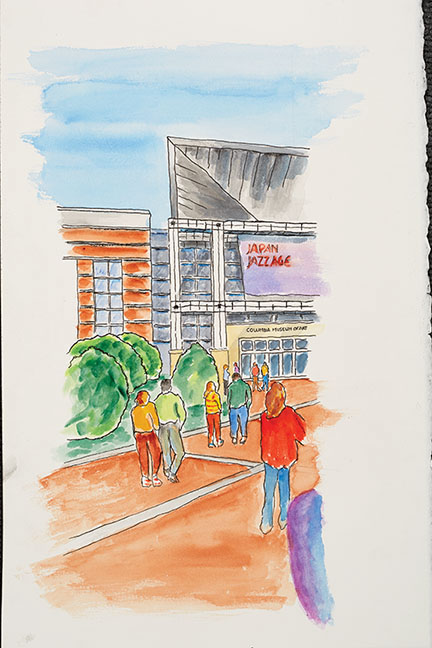 JAPAN
JAZZ AGE
COLUMBIA MUSEUM OF ART